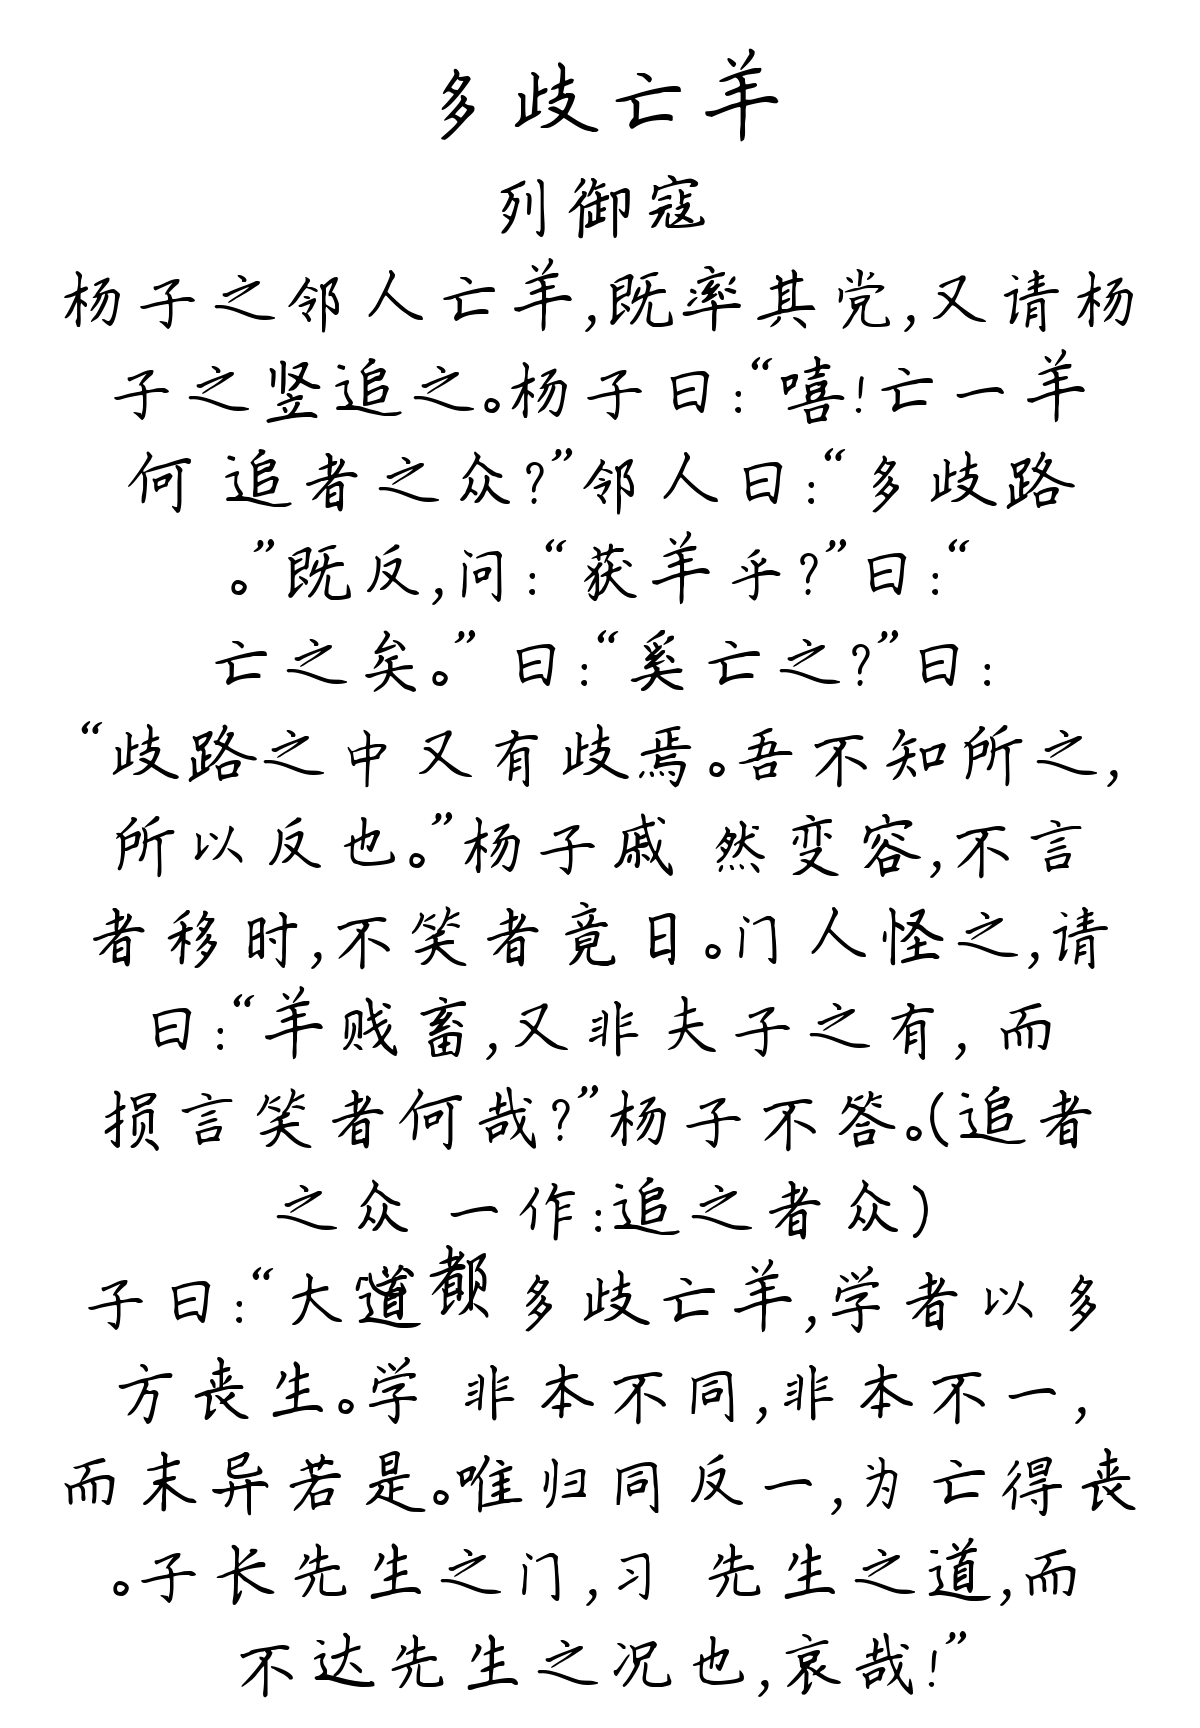 多歧亡羊
列御寇
杨子之邻人亡羊,既率其党,又请杨
子之竖追之。杨子曰:“嘻!亡一羊
何 追者之众?”邻人曰:“多歧路
。”既反,问:“获羊乎?”曰:“
亡之矣。” 曰:“奚亡之?”曰:
“歧路之中又有歧焉。吾不知所之,
所以反也。”杨子戚 然变容,不言
者移时,不笑者竟日。门人怪之,请
曰:“羊贱畜,又非夫子之有, 而
损言笑者何哉?”杨子不答。(追者
之众 一作:追之者众)
子曰:“大道 多歧亡羊,学者以多
方丧生。学 非本不同,非本不一,
而末异若是。唯归同反一,为亡得丧
。子长先生之门,习 先生之道,而
不达先生之况也,哀哉!”